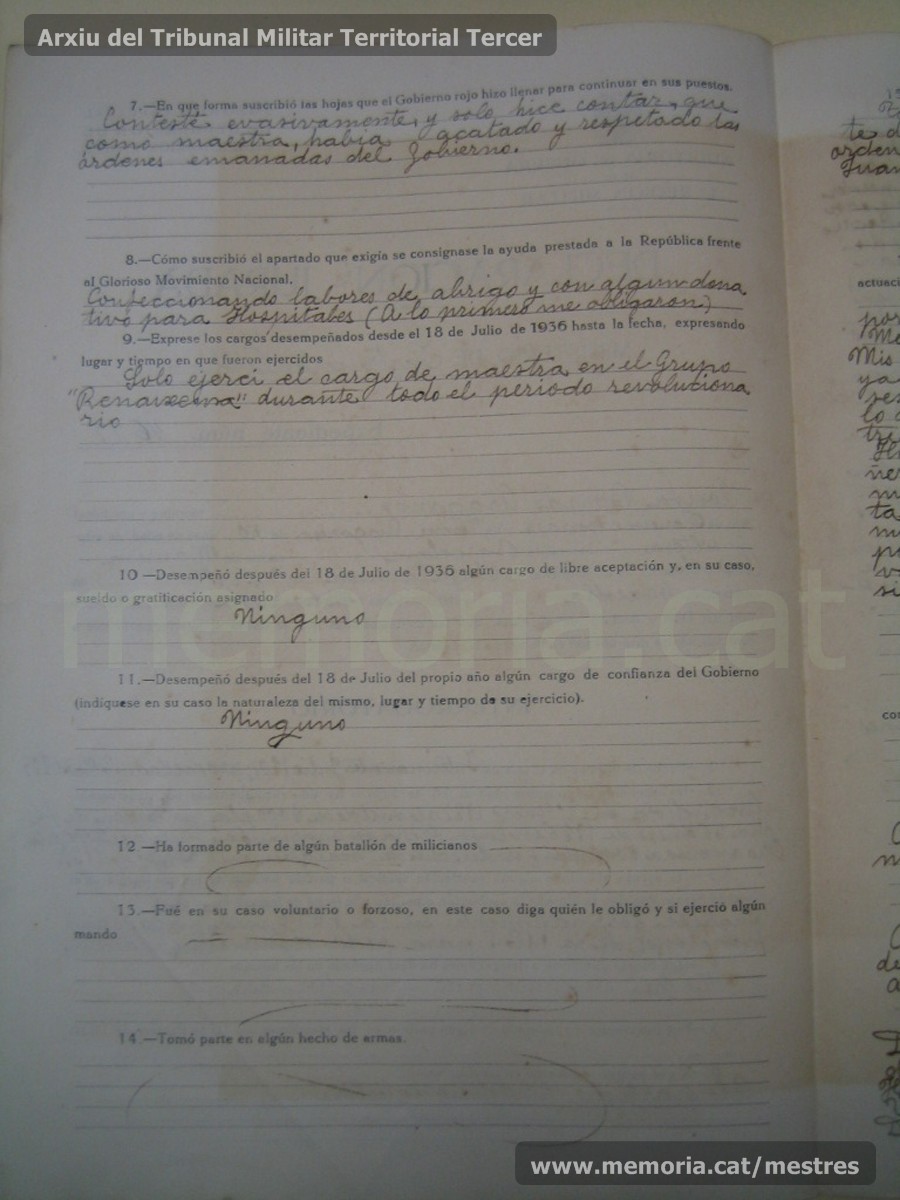 Arxiu del Tribunal Militar Territorial Tercer
7.—En que forma suscribió las hojas que el Gobierno rojo hizo llenar para continuar en sus puestos.
Contesté evasivamente, y solo hice contar, que
como maestra, habia acatado y respetado las
órdenes emanadas del Gobierno.
8.—Cómo suscribió el apartado que exigía se consignase la ayuda prestada a la República frente
al Glorioso Movimiento Nacional.
Confeccionando labores de abrigo y con algun dona
tivo para Hospitales (A lo primero me obligaron)
9.—Exprese los cargos desempeñados desde el 18 de Julio de 1936 hasta la fecha, expresando
lugar y tiempo en que fueron ejercidos
Solo ejercí el cargo de maestra en el Grupo
"Renaixensa" durante todo el periodo revoluciona
rio
10 —Desempeñó después del 18 de Julio de 1936 algún cargo de libre aceptación y, en su caso,
sueldo o gratificación asignado
Ninguno
memoria.cat
11.—Desempeñó después del 18 de Julio del propio año algún cargo de confianza del Gobierno
(indíquese en su caso la naturaleza del mismo, lugar y tiempo de su ejercicio).
Ninguno
12 —Ha formado parte de algún batallón de milicianos
13.—Fué en su caso voluntario o forzoso, en este caso diga quién le obligó y si ejerció algún
mando
14.—Tomó parte en algún hecho de armas.
www.memoria.cat/mestres